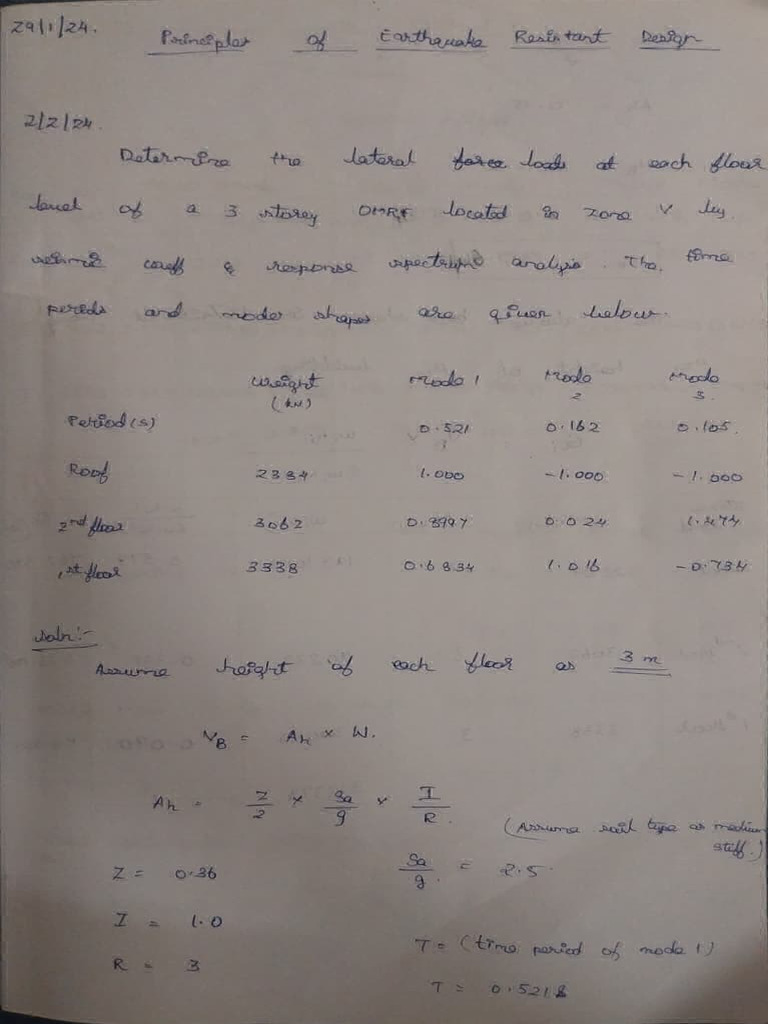 29/1/24.
Principles of Earthquake Resistant Design
2/2/24.
Determine the lateral loads at each floor
level of a 3 storey OMRF located in zone V by
seismic coeff & response spectrum analysis. The time
periods and mode shapes are given below.
Weight (kN) Mode 1 Mode 2 Mode 3.
Period (s) 0.521 0.162 0.105.
Roof 2334 1.000 -1.000 -1.000
2nd floor 3062 0.8997 0.024 1.474
1st floor 3338 0.6834 1.016 -0.734
Soln:-
Assume height of each floor as 3 m
VB = Ah × W.
Ah = Z/2 × Sa/g × I/R.
(Assume soil type as medium
stiff.)
Z = 0.36 Sa/g = 2.5
I = 1.0
T = (time period of mode 1)
R = 3
T = 0.521 s